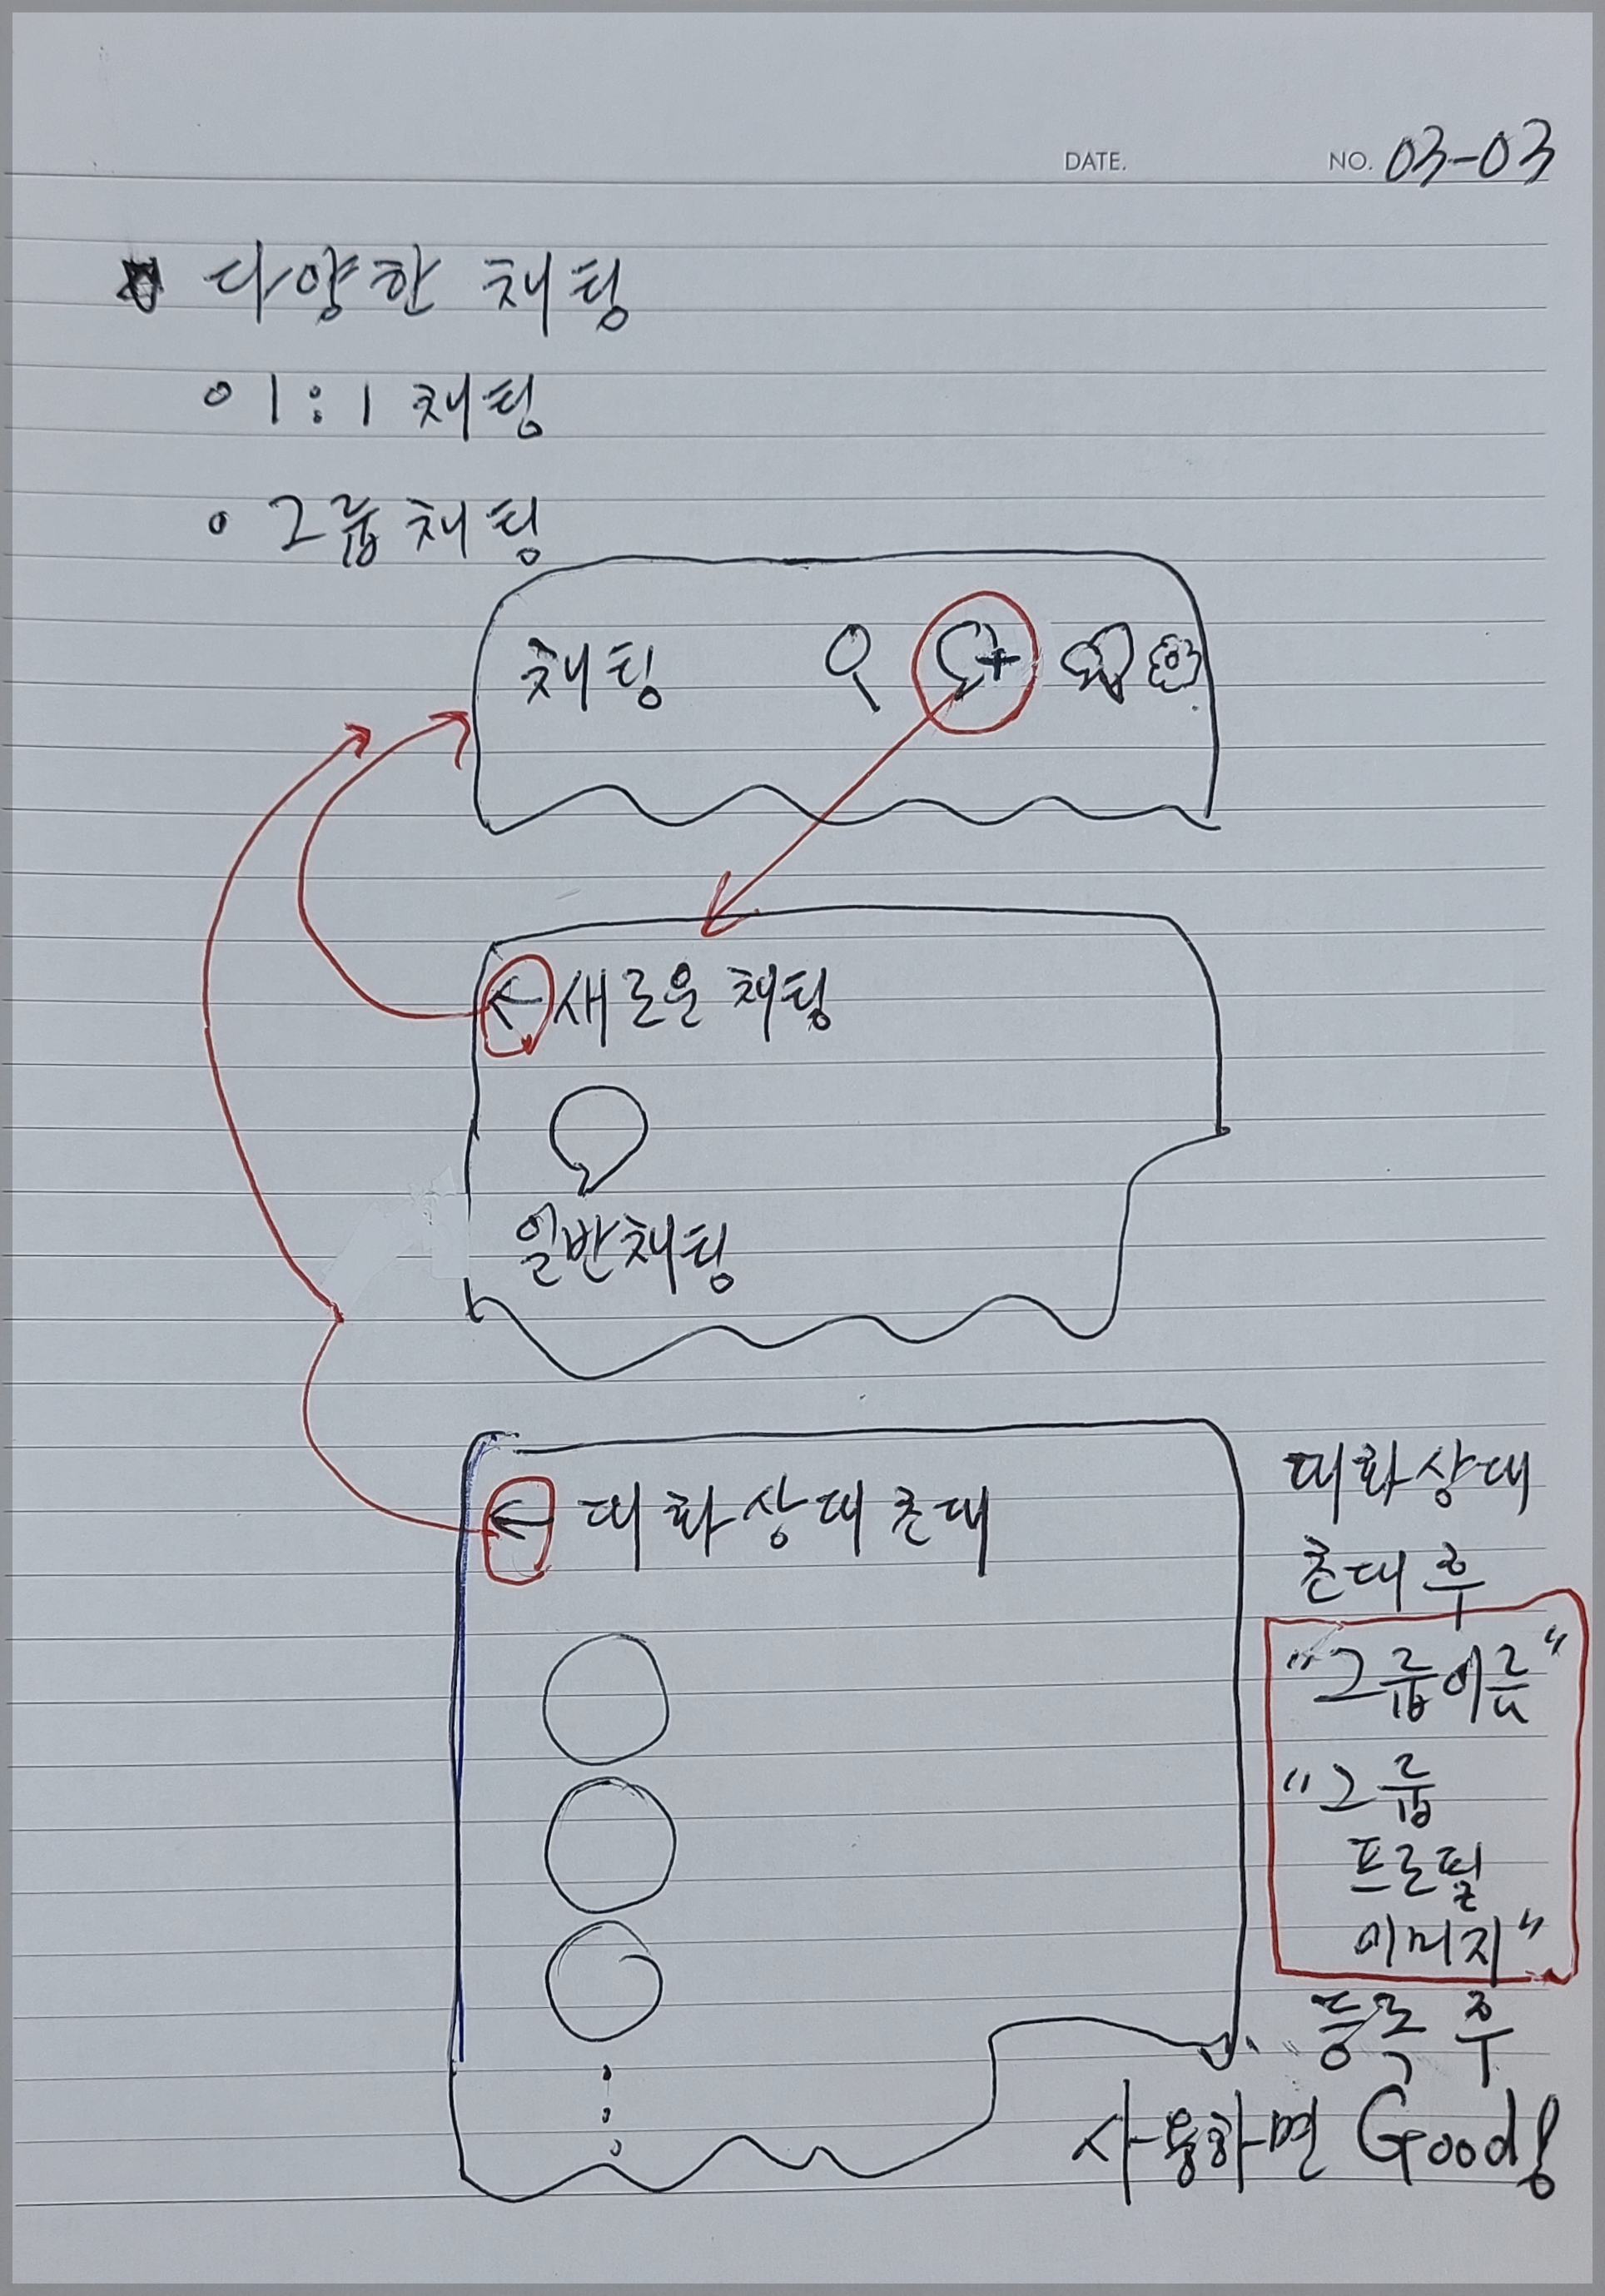 DATE.
NO. 03-03
다양한 채팅
○ 1:1 채팅
○ 그룹채팅
채팅
← 새로운 채팅
일반채팅
← 대화상대초대
대화상대
초대 후
"그룹이름"
"그룹
프로필
이미지"
등록 후
사용하면 Good!